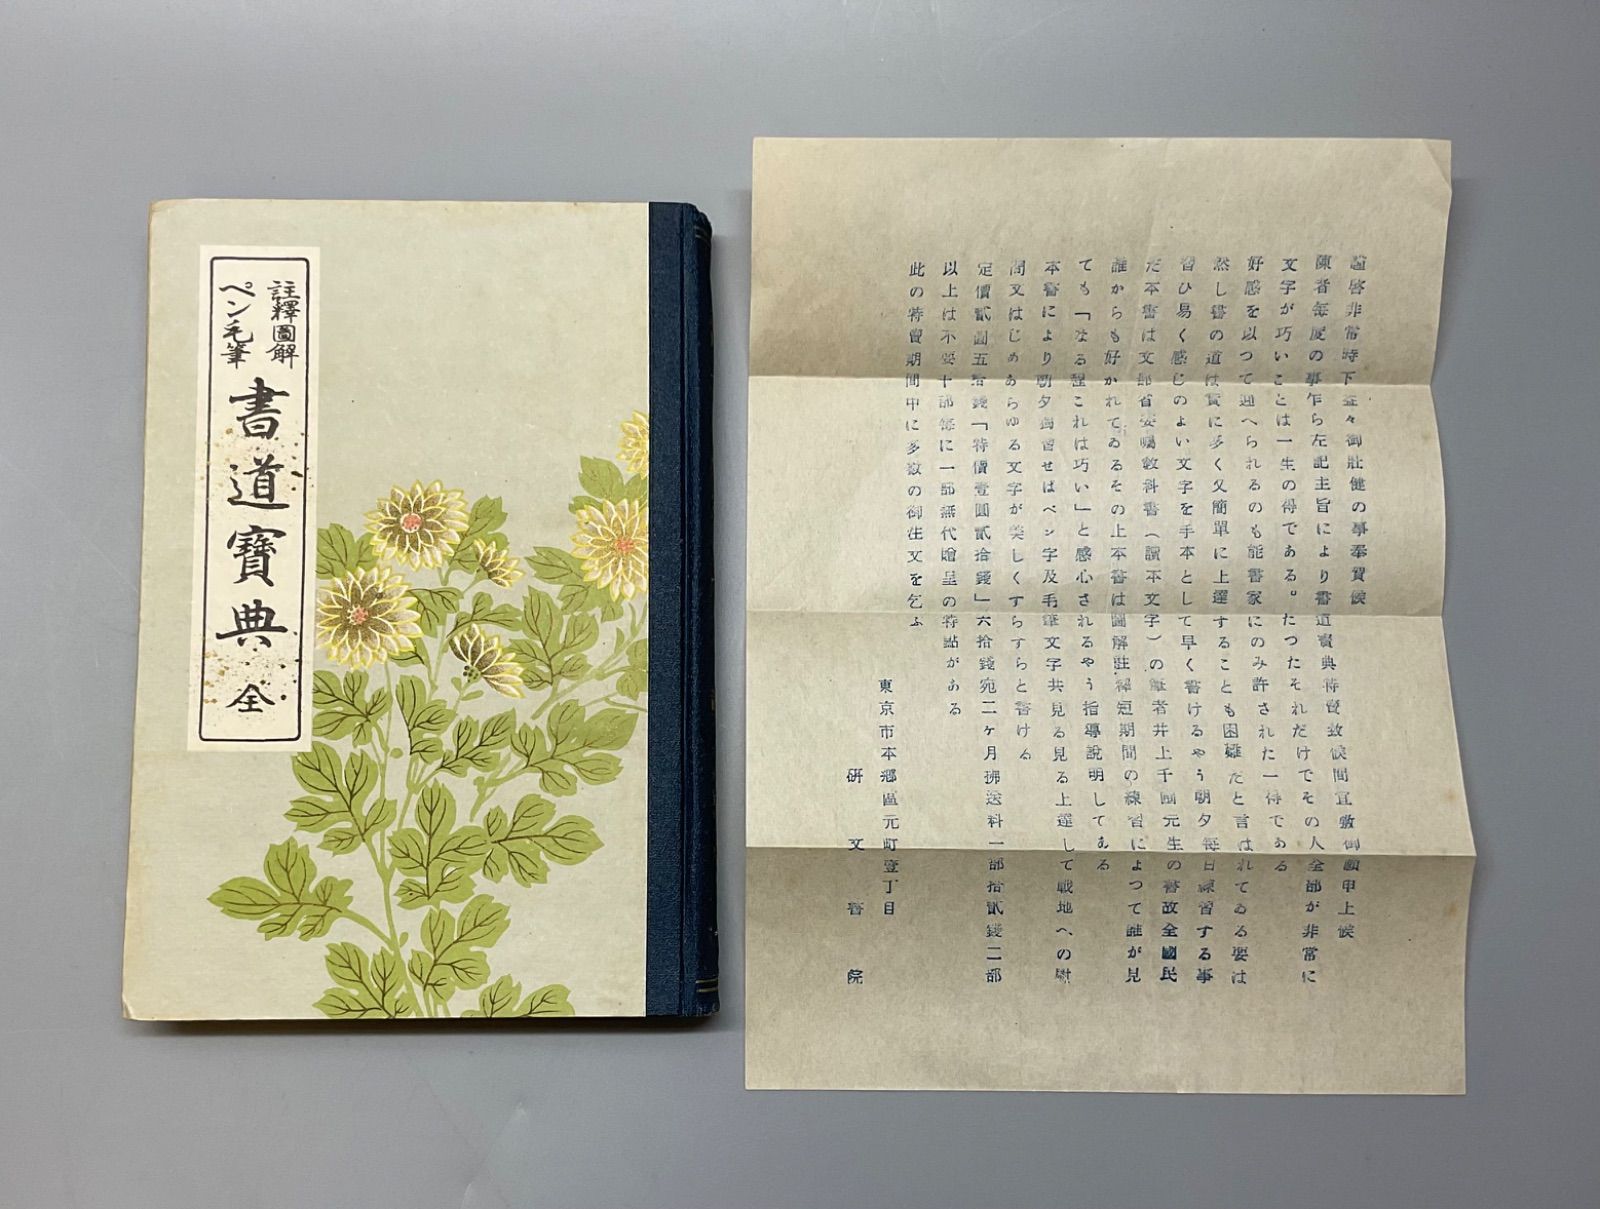 註釋圖解
ペン毛筆
書道寶典 全
謹啓非常時下益々御壯健の事奉賀候
陳者毎度の事乍ら左記主旨により書道寶典特賣致候間宜敷御願申上候
文字が巧いことは一生の得である。たつたそれだけでその人全部が非常に
好感を以つて迎へられるのも能書家にのみ許された一得である
然し書の道は實に多く又簡單に上達することも困難だと言はれてゐる要は
習ひ易く感じのよい文字を手本として早く書けるやう朝夕毎日練習する事
だ本書は文部省委嘱敎科書(讀本文字)の筆者井上千圃先生の書故全國民
誰からも好かれてゐるその上本書は圖解註釋短期間の練習によつて誰が見
ても「なる程これは巧い」と感心されるやう指導說明してある
本書により朝夕獨習せばペン字及毛筆文字共見る見る上達して戰地への慰
問文はじめあらゆる文字が美しくすらすらと書ける
定價貳圓五拾錢「特價壹圓貳拾錢」六拾錢宛二ケ月拂送料一部拾貳錢二部
以上は不要十部每に一部無代贈呈の特點がある
此の特賣期間中に多數の御注文を乞ふ
東京市本鄕區元町壹丁目
硏文書院